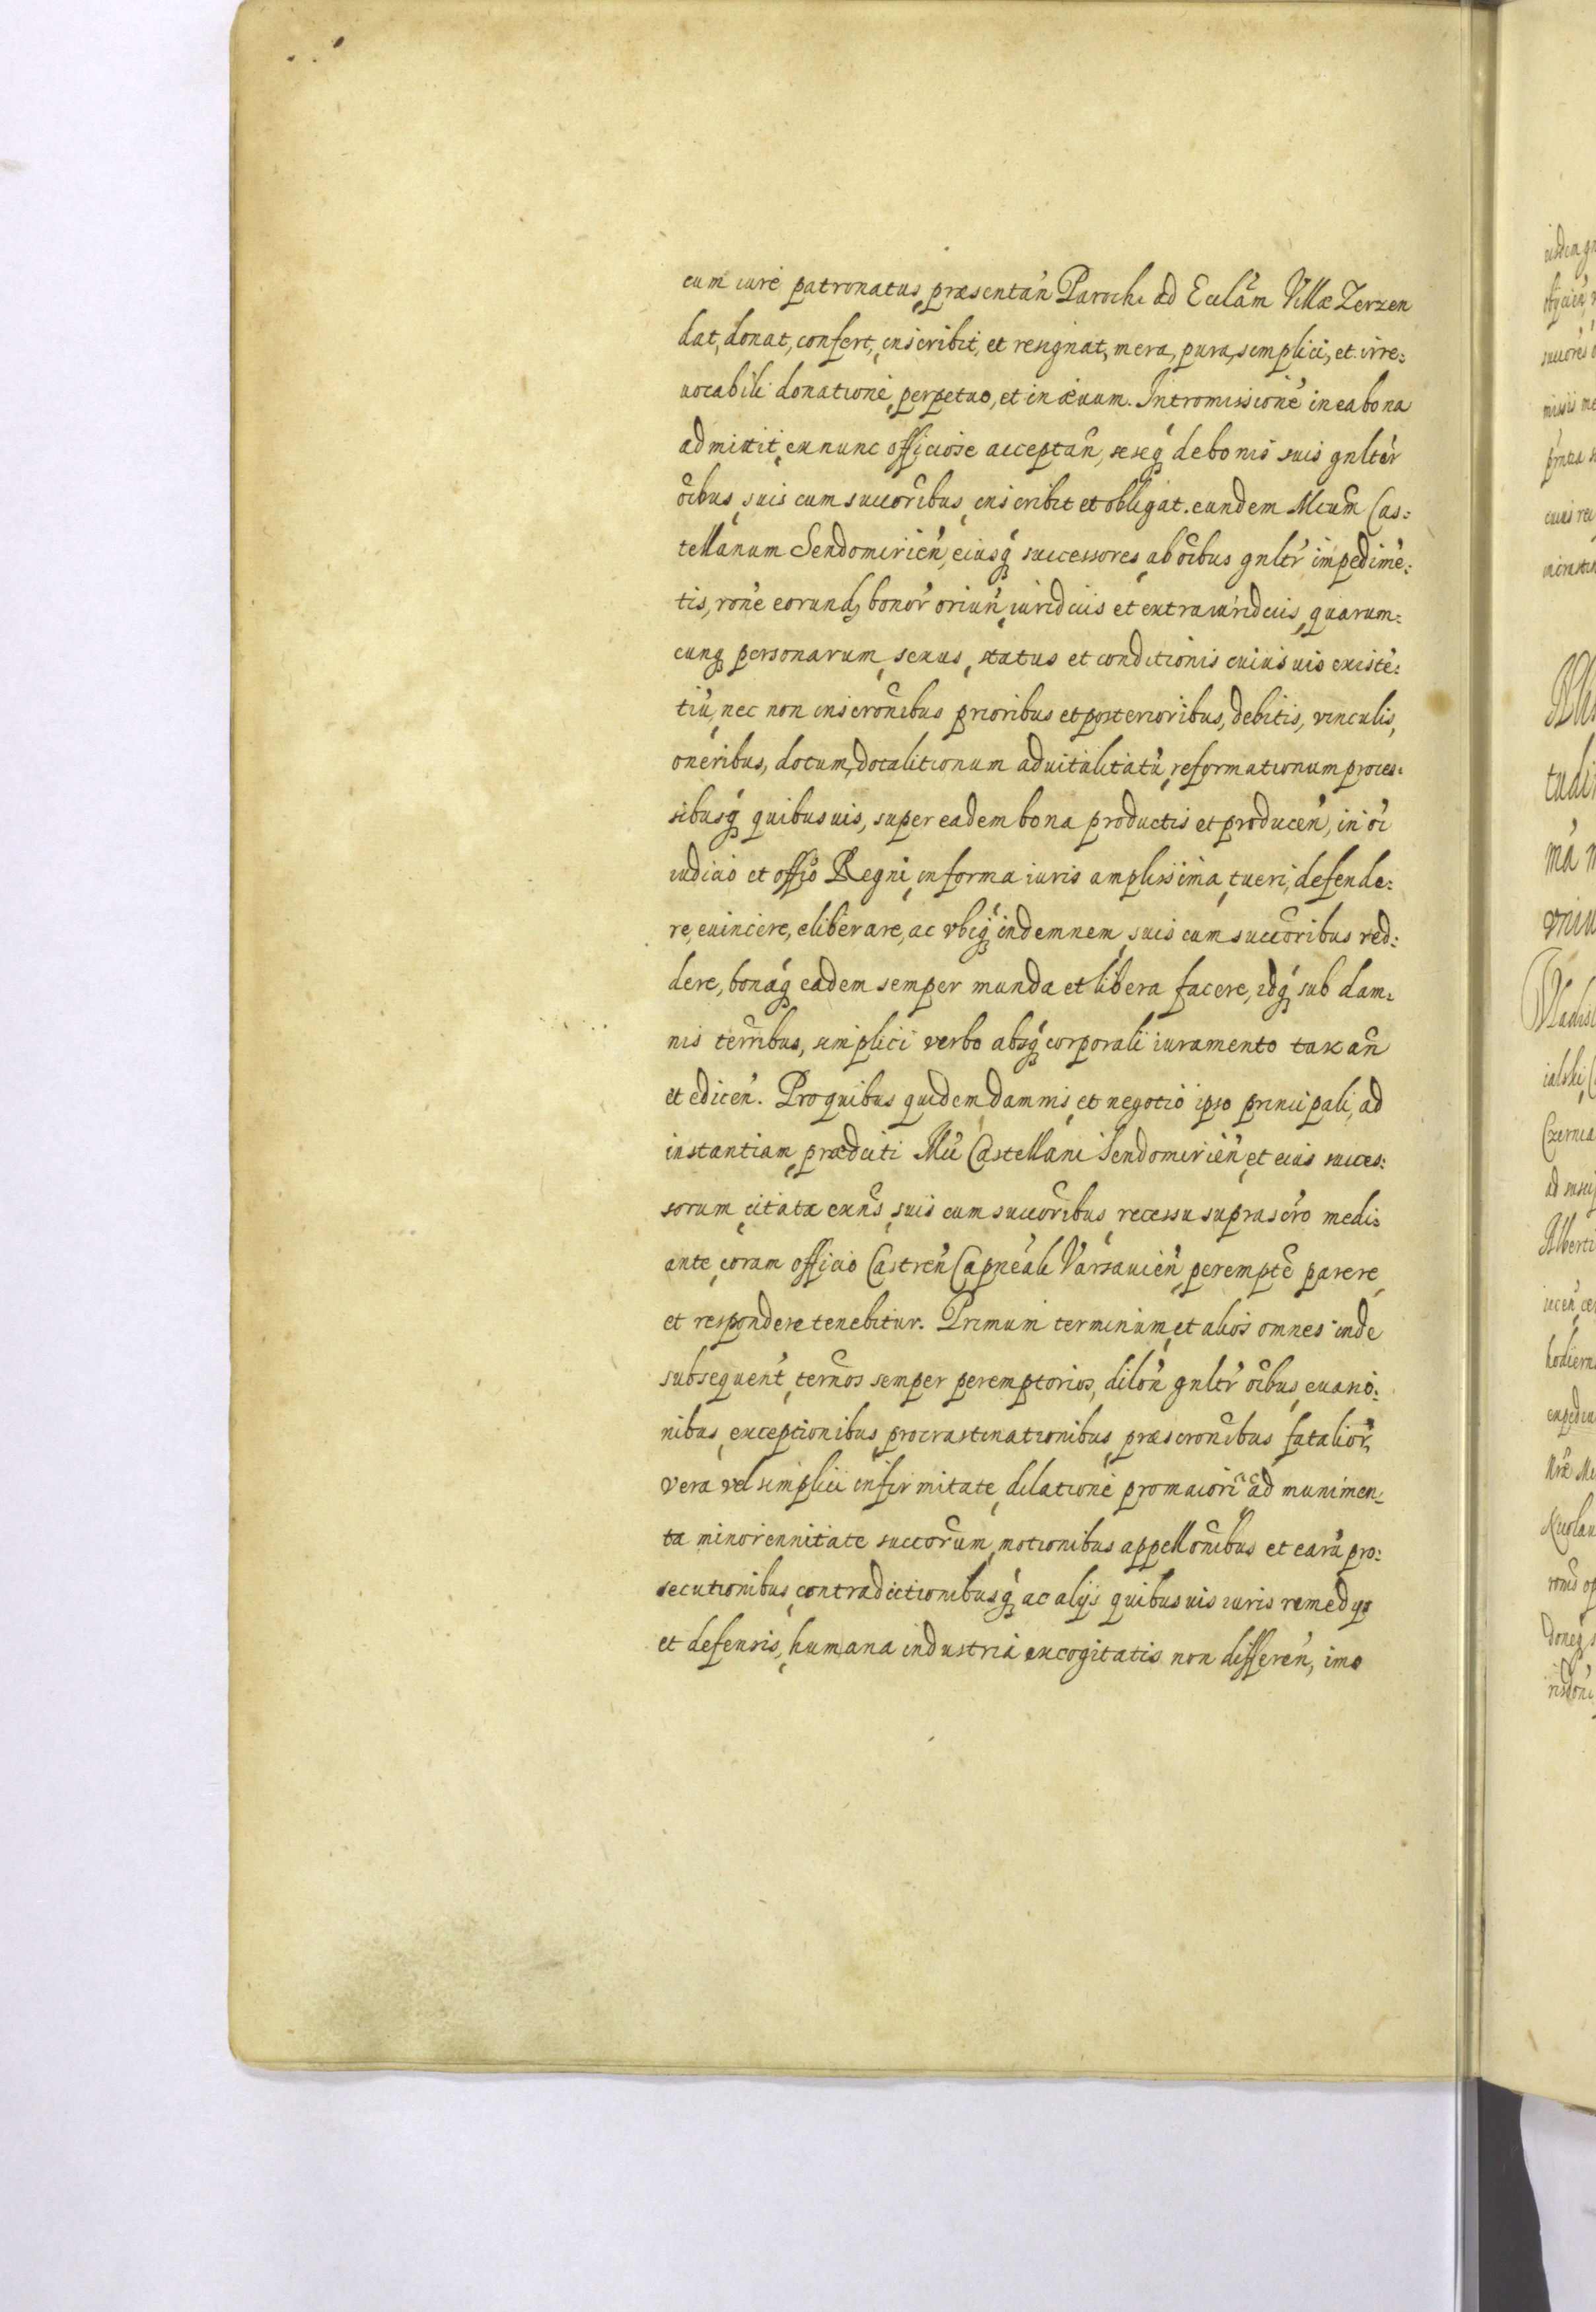 cum iure patronatus, præsentan̄ Parochi ad Ecclām Villæ Zerzen
dat, donat, confert, inscribit, et resignat, mera, pura, simplici, et irre:
uocabili donatione, perpetuo, et in æuum. Intromissionē in ea bona
admittit, ex nunc officiose acceptan̄, seseq́ʒ de bonis suis gnltēr
oībus, suis cum succorībus, inscribit et obligat. eundem Mcum̄ Cas:
tellanum Sendomirien̄, eiusq́ʒ successores, ab oībus gnltr̄ impedimē:
tis, rōne eorundʒ bonor̄ oriun̄, iuridicis et extraiuridicis, quarum:
cunqʒ personarum, sexus, status et conditionis cuiusuis existē:
tiū, nec non inscronībus prioribus et posterioribus, debitis, vinculis,
oneribus, dotum, dotalitionum aduitalitatū, reformationum proces:
sibusq́ʒ quibusuis, super eadem bona productis et producen̄, in oī
iudicio et offīo Regni, in forma iuris amplissima, tueri, defende:
re, euincere, eliberare, ac vbiq́ʒ indemnem, suis cum succorībus red:
dere, bonaq́ʒ eadem semper munda et libera facere, idq́ʒ sub dam:
nis terr̄ibus, simplici verbo absq́ʒ corporali iuramento taxan̄
et edicen̄. Pro quibus quidem damnis, et negotio ipso principali, ad
instantiam, prædicti Mci Castellani Sendomirien̄, et eius succes:
sorum, citata exn̄s, suis cum succorībus, recessu suprascr̄o medi:
ante, coram officio Castren̄ Capneāli Varsauien̄, peremptē parere,
et respondere tenebitur. Primum terminum, et alios omnes inde
subsequent̄, ternōs semper peremptorios, dilōn gnltr̄ oībus, euasiō:
nibus, exceptionibus, procrastinationibus, præscronībus fatalior̄,
vera vel simplici infirmitate, dilatione pro maiori, ad munimen:
ta minorennitate succorūm, motionibus appellonībus et earū pro:
secutionibus, contradictionibusq́ʒ ac alijs quibusuis iuris remedijs
et defensis, humana industria excogitatis non differen̄, imo